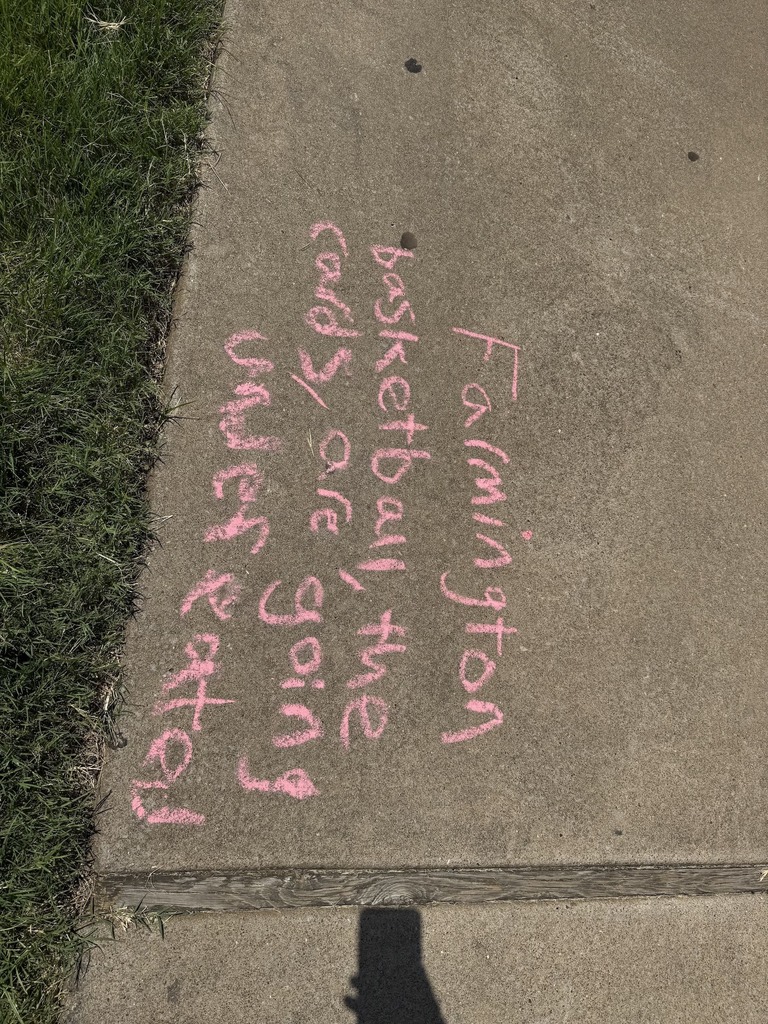 Farmington
basketball, the
cards, are going
undefeated